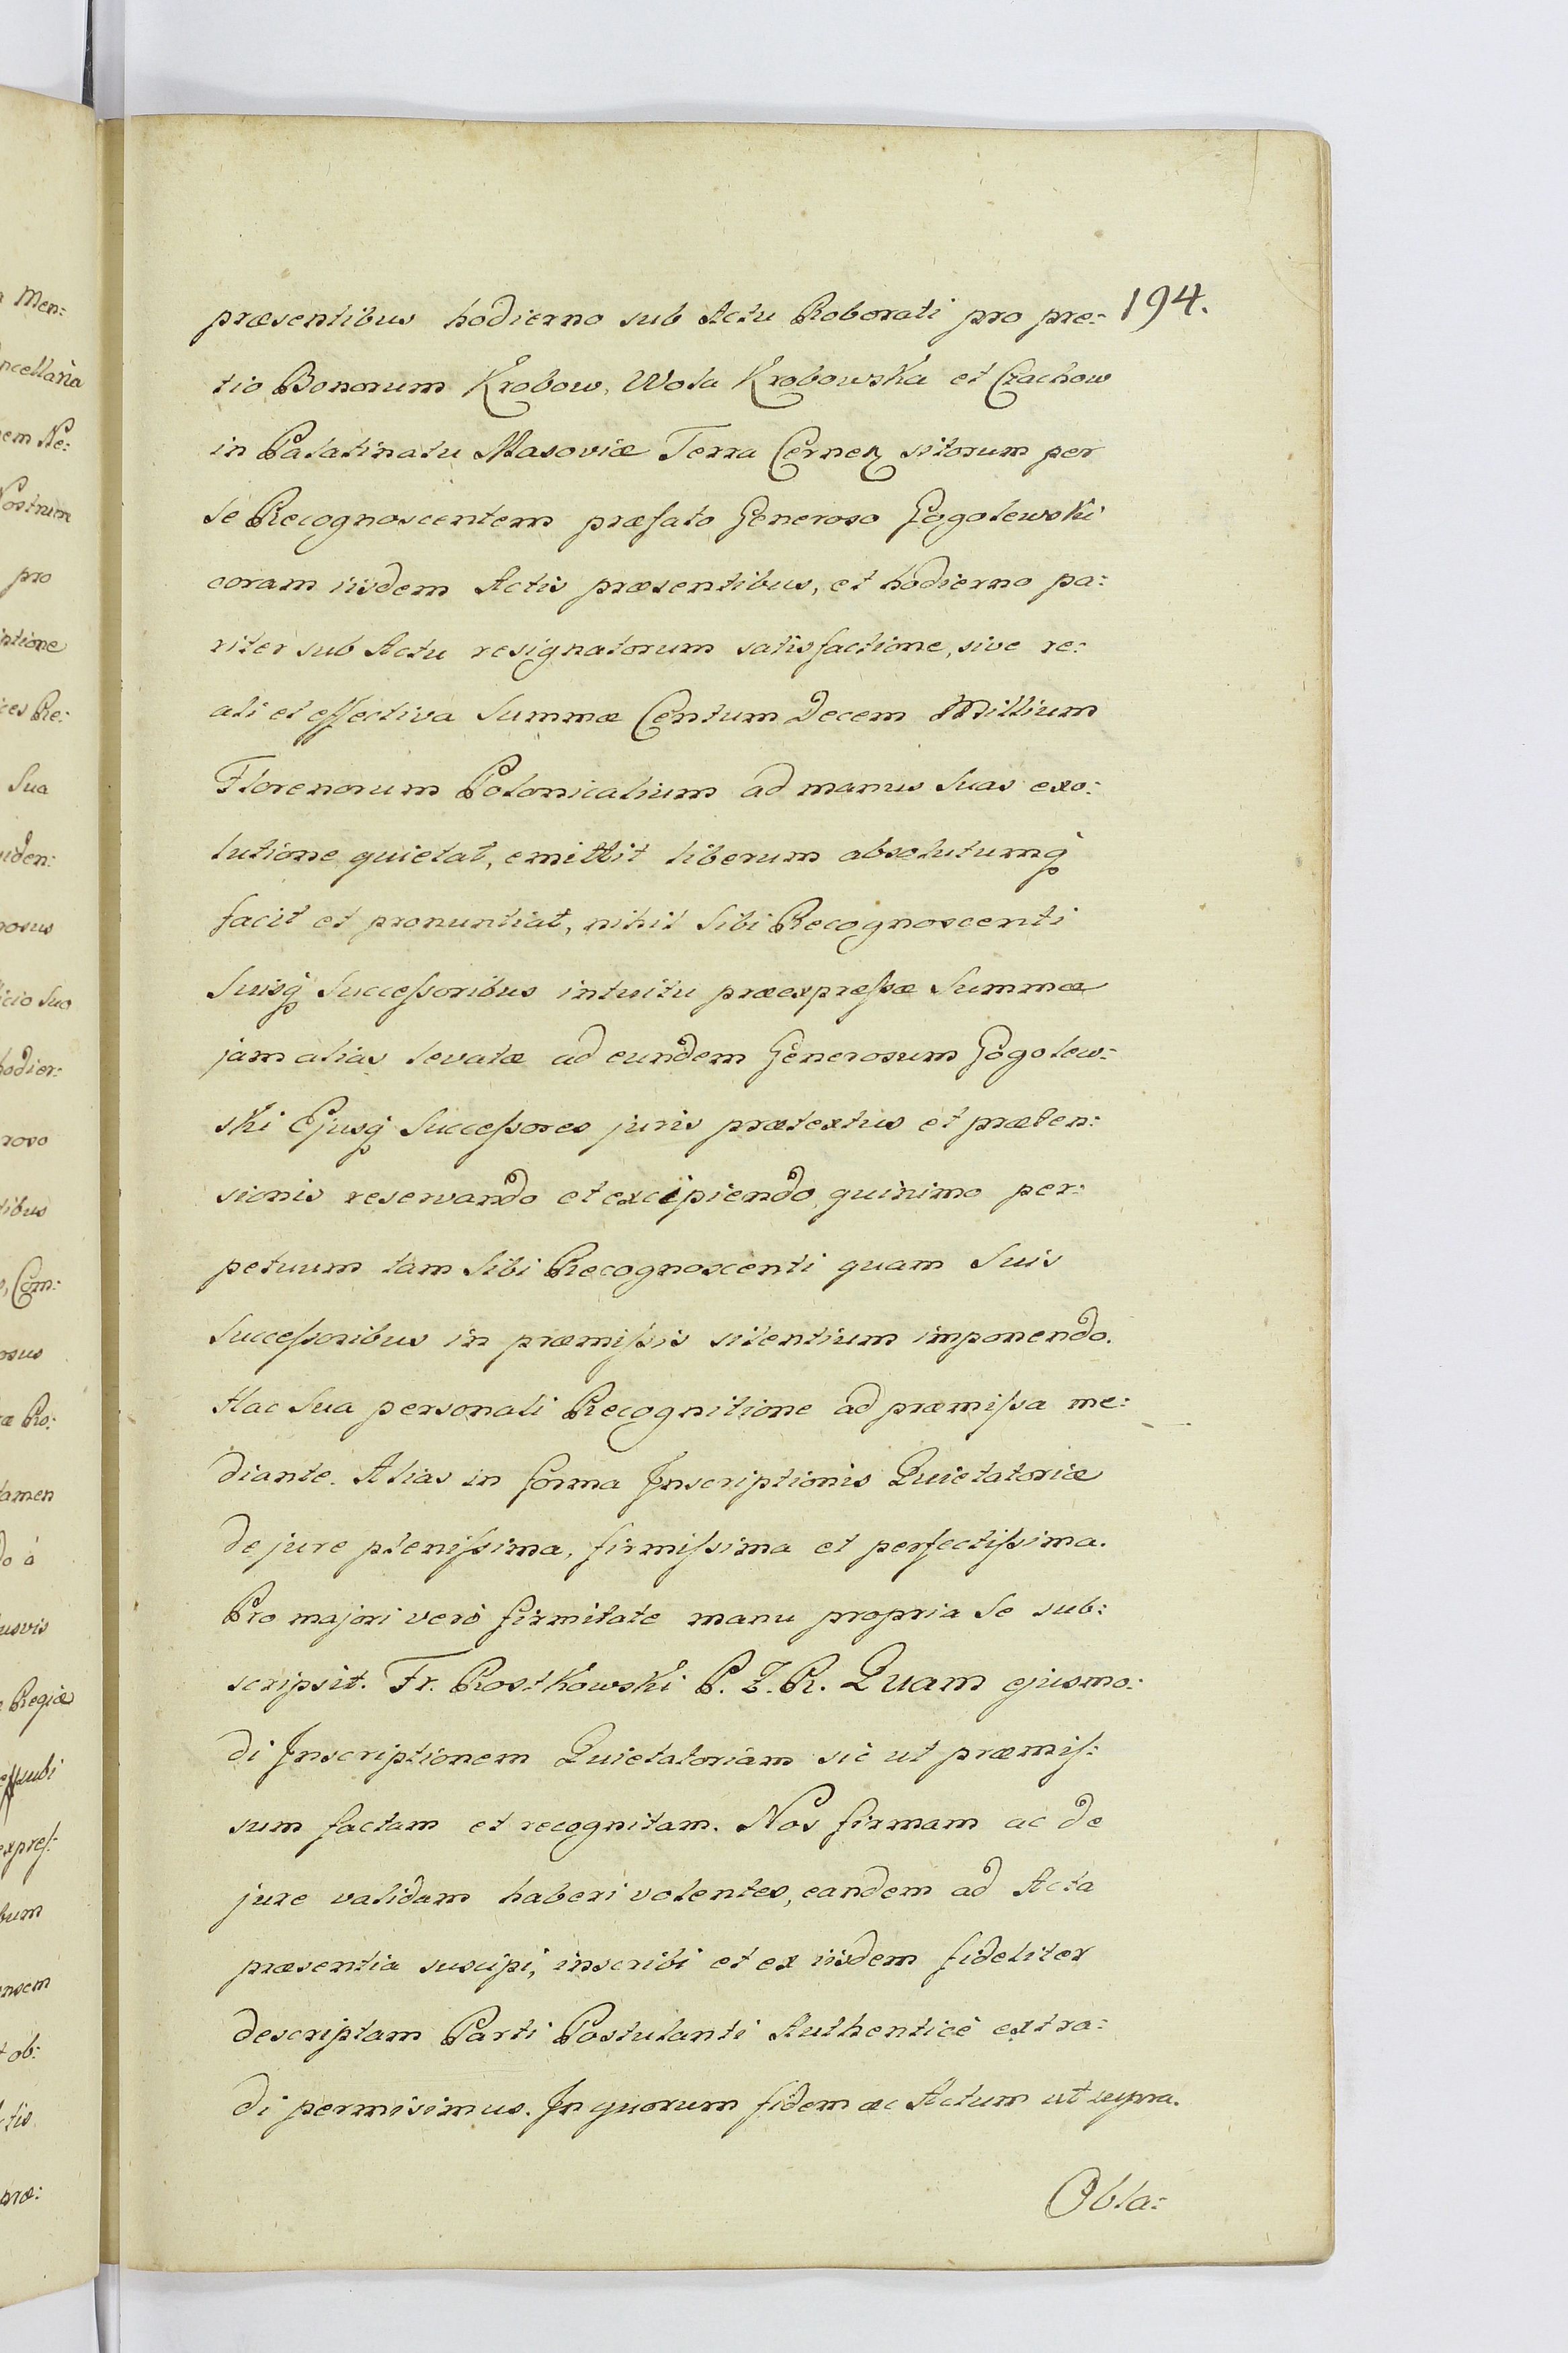 præsentibus hodierno sub Actu Roborati pro pre: 194.
tio Bonorum Krobow, Wola Krobowska et Czachow
in Palatinatu Masoviæ Terra Cernen sitorum per
se Recognoscentem præfato Generoso Gogolewski
coram iisdem Actis præsentibus, et hodierno pa:
riter sub Actu resignatorum satisfactione, sive re:
ali et effectiva Summæ Centum Decem Millium
Florenorum Polonicalium ad manus Suas exo:
lutione quietat, emittit liberum absolutumq
facit et pronuntiat, nihil Sibi Recognoscenti
Suisq Succeſsoribus intuitu præexpreſsæ Summæ
jam alias levatæ ad eundem Generosum Gogolew:
ski Ejusq Succeſsores juris prætextus et præten:
sionis reservando et excipiendo, quinimo per:
petuum tam Sibi Recognoscenti quam Suis
Succeſsoribus in præmiſsis silentium imponendo.
Hac Sua personali Recognitione ad præmiſsa me:
diante. Alias in forma Inscriptionis Quietatoriæ
de jure pleniſsima, firmiſsima et perfectiſsima.
Pro majori verò firmitate manu propria Se sub:
scripsit. Fr. Rostkowski P. Z. R. Quam ejusmo:
di Inscriptionem Quietatoriam sic ut præmiſ:
sum factam et recognitam. Nos firmam ac de
jure validam haberi volentes, eandem ad Acta
præsentia suscipi, inscribi et ex iisdem fideliter
descriptam Parti Postulanti Authenticè extra:
di permisimus. In quorum fidem ac Actum ut supra.
Obla: